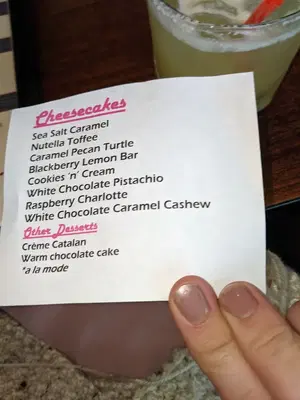 Cheesecakes
Sea Salt Caramel
Nutella Toffee
Caramel Pecan Turtle
Blackberry Lemon Bar
Cookies 'n' Cream
White Chocolate Pistachio
Raspberry Charlotte
White Chocolate Caramel Cashew
Other Desserts
Crème Catalan
Warm chocolate cake
*a la mode